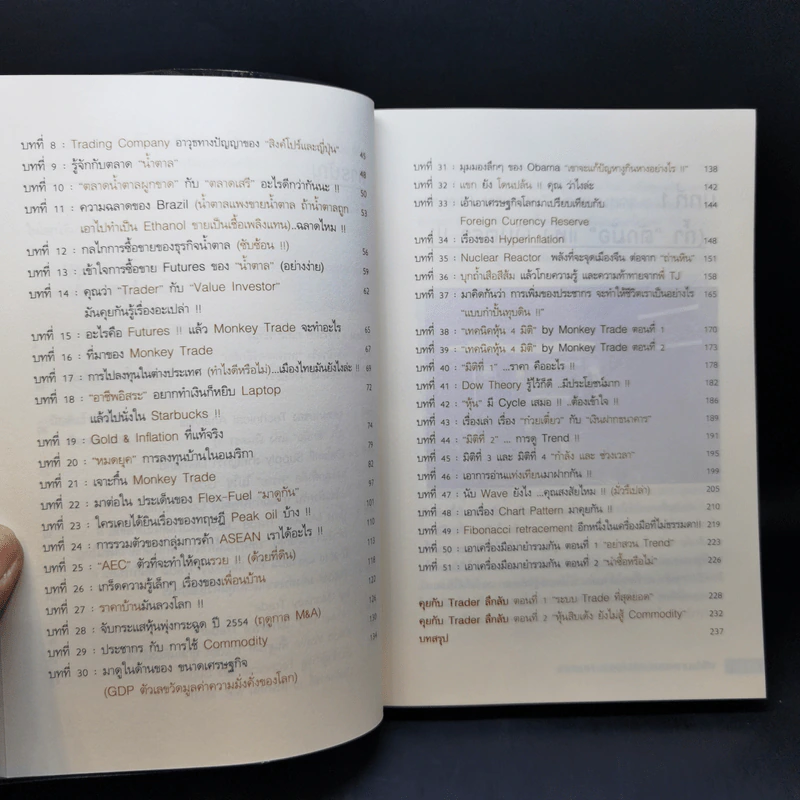 บทที่ 8 : Trading Company อาวุธทางปัญญาของ "สิงค์โปร์และญี่ปุ่น" 45
บทที่ 9 : รู้จักกับตลาด "น้ำตาล" 48
บทที่ 10 : "ตลาดน้ำตาลผูกขาด" กับ "ตลาดเสรี" อะไรดีกว่ากันนะ !! 50
บทที่ 11 : ความฉลาดของ Brazil (น้ำตาลแพงขายน้ำตาล ถ้าน้ำตาลถูก 53
เอาไปทำเป็น Ethanol ขายเป็นเชื้อเพลิงแทน)...ฉลาดไหม !!
บทที่ 12 : กลไกการซื้อขายของธุรกิจน้ำตาล (ซับซ้อน !!) 56
บทที่ 13 : เข้าใจการซื้อขาย Futures ของ "น้ำตาล" (อย่างง่าย) 59
บทที่ 14 : คุณว่า "Trader" กับ "Value Investor" 62
มันคุยกันรู้เรื่องอะเปล่า !!
บทที่ 15 : อะไรคือ Futures !! แล้ว Monkey Trade จะทำอะไร 65
บทที่ 16 : ที่มาของ Monkey Trade 67
บทที่ 17 : การไปลงทุนในต่างประเทศ (ทำไงดีหรือไม่)...เมืองไทยมันยังไงล่ะ !! 69
บทที่ 18 : "อาชีพอิสระ" อยากทำเงินก็หยิบ Laptop 72
แล้วไปนั่งใน Starbucks !!
บทที่ 19 : Gold & Inflation ที่แท้จริง 74
บทที่ 20 : "หมดยุค" การลงทุนบ้านในอเมริกา 79
บทที่ 21 : เจาะกึ๋น Monkey Trade 82
บทที่ 22 : มาต่อใน ประเด็นของ Flex-Fuel "มาดูกัน" 97
บทที่ 23 : ใครเคยได้ยินเรื่องของทฤษฎี Peak oil บ้าง !! 101
บทที่ 24 : การรวมตัวของกลุ่มการค้า ASEAN เราได้อะไร !!
บทที่ 25 : "AEC" ตัวที่จะทำให้คุณรวย !! (ด้วยที่ดิน) 118
บทที่ 26 : เกร็ดความรู้เล็กๆ เรื่องของเพื่อนบ้าน
บทที่ 27 : ราคาบ้านมันลวงโลก !! 122
บทที่ 28 : จับกระแสหุ้นพุ่งกระฉูด ปี 2554 (ฤดูกาล M&A)
บทที่ 29 : ประชากร กับ การใช้ Commodity
บทที่ 30 : มาดูในด้านของ ขนาดเศรษฐกิจ
(GDP ตัวเลขวัดมูลค่าความมั่งคั่งของโลก)
บทที่ 31 : มุมมองลึกๆ ของ Obama "เขาจะแก้ปัญหางูกินหางอย่างไร !!" 138
บทที่ 32 : แขก ยัง โดนปล้น !! คุณ ว่าไงล่ะ 142
บทที่ 33 : เอ้านาเศรษฐกิจโลกมาเปรียบเทียบกับ 144
Foreign Currency Reserve
บทที่ 34 : เรื่องของ Hyperinflation 148
บทที่ 35 : Nuclear Reactor พลังที่จะจุดเมืองจีน ต่อจาก "ถ่านหิน" 151
บทที่ 36 : บุกถ้ำเสือสีส้ม แล้วโกยความรู้ และความท้าทายจากพี่ TJ 158
บทที่ 37 : มาคิดกันว่า การเพิ่มของประชากร จะทำให้ชีวิตเราเป็นอย่างไร 165
"แบบกำปั้นทุบดิน"
บทที่ 38 : "เทคนิคหุ้น 4 มิติ" by Monkey Trade ตอนที่ 1 170
บทที่ 39 : "เทคนิคหุ้น 4 มิติ" by Monkey Trade ตอนที่ 2 173
บทที่ 40 : "มิติที่ 1" ...ราคา คืออะไร !! 178
บทที่ 41 : Dow Theory รู้ไว้ก็ดี ..มีประโยชน์มาก !! 182
บทที่ 42 : "หุ้น" มี Cycle เสมอ !! ..ต้องเข้าใจ !! 186
บทที่ 43 : เรื่องเล่า เรื่อง "ก๋วยเตี๋ยว" กับ "เงินฝากธนาคาร" 189
บทที่ 44 : "มิติที่ 2" ... การดู Trend !! 191
บทที่ 45 : มิติที่ 3 และ มิติที่ 4 "กำลัง และ ช่วงเวลา" 195
บทที่ 46 : เอาการอ่านแท่งเทียนมาฝากกัน !! 199
บทที่ 47 : นับ Wave ยังไง ...คุณสงสัยไหม !! (มั่วรึเปล่า) 205
บทที่ 48 : เอาเรื่อง Chart Pattern มาคุยกัน !!
บทที่ 49 : Fibonacci retracement อีกหนึ่งในเครื่องมือที่ไม่ธรรมดา!! 219
บทที่ 50 : เอาเครื่องมือมายำรวมกัน ตอนที่ 1 "อย่าสวน Trend" 223
บทที่ 51 : เอาเครื่องมือมายำรวมกัน ตอนที่ 2 "น่าซื้อหรือไม่" 226
คุยกับ Trader ลึกลับ ตอนที่ 1 "ระบบ Trade ที่สุดยอด" 228
คุยกับ Trader ลึกลับ ตอนที่ 2 "หุ้นสิบเด้ง ยังไม่สู้ Commodity" 232
บทสรุป 237